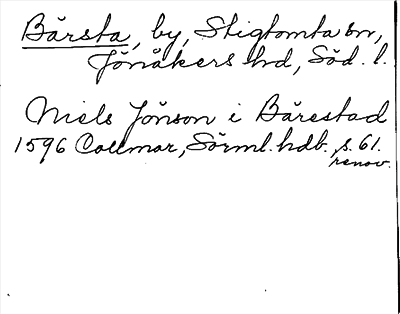 Bårsta, by, Stigtomta sn,
Jönåkers hd, Söd. l.
Niels Jönson i Bårestad
1596 Collmar, Sörml. hdb., s. 61.
renov.